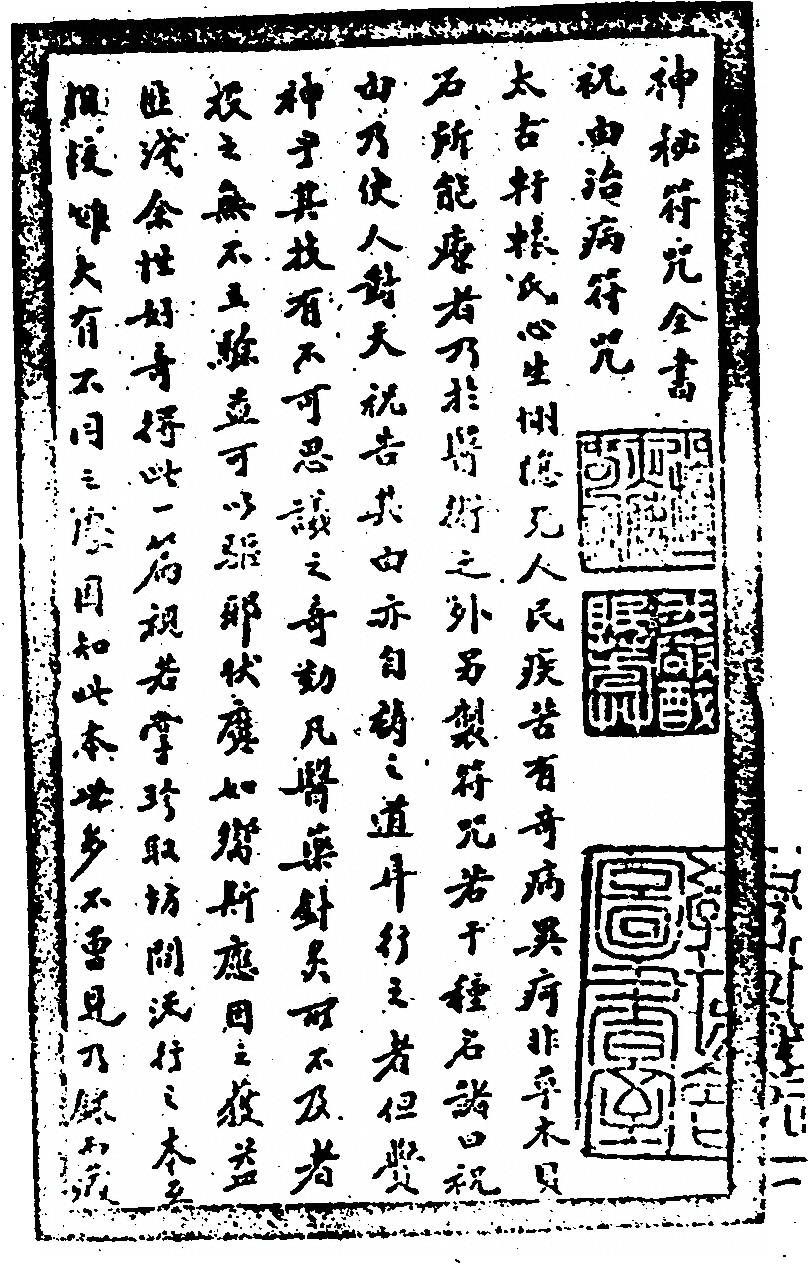 神秘符咒全書
祝由治病符咒
太古軒轅氏心生惻隱見人民疾苦有奇病異疴非草木貝
石所能療者乃於醫術之外另製符咒若干種名諸曰祝
由乃使人對天祝告其由亦自禱之道耳行之者但覺
神乎其技有不可思議之奇効凡醫藥針灸所不及者
投之無不立驗並可以驅邪伏魔如響斯應因之獲益
匪淺余性好奇得此一篇視若掌珍取坊間流行之本
相校雖大有不同之處因知此本世多不曾見乃錄而